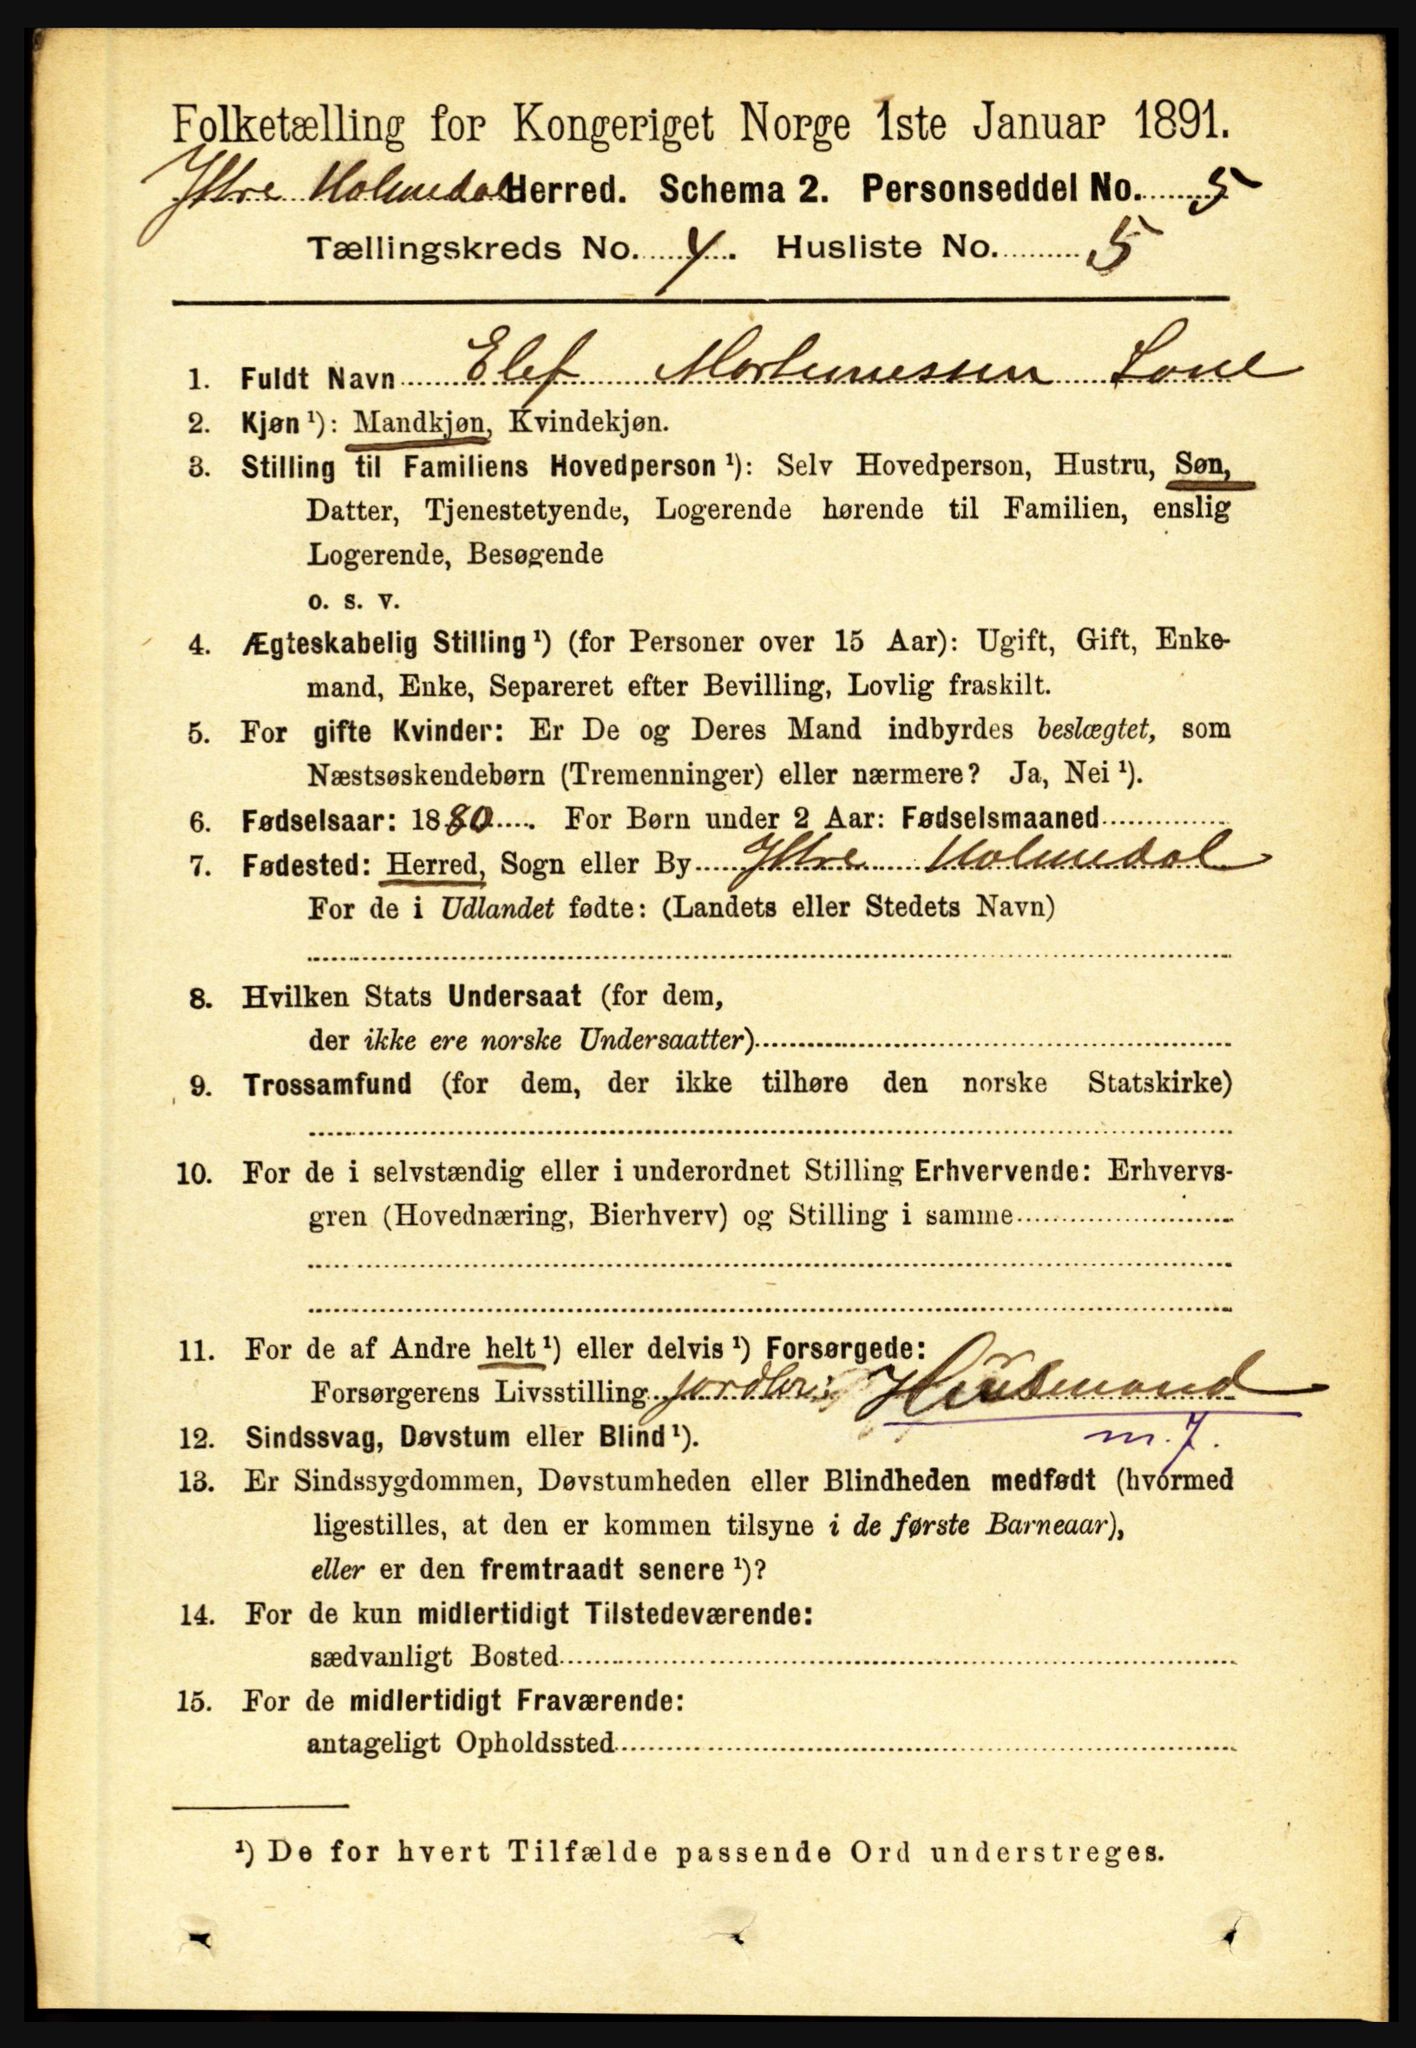 Folketælling for Kongeriget Norge 1ste Januar 1891.
Yttre Holmedal Herred. Schema 2. Personseddel No. 5
Tællingskreds No. 4. Husliste No. 5
1. Fuldt Navn Elef Mortinussen Sone
2. Kjøn ¹): Mandkjøn, Kvindekjøn.
3. Stilling til Familiens Hovedperson ¹): Selv Hovedperson, Hustru, Søn,
Datter, Tjenestetyende, Logerende hørende til Familien, enslig
Logerende, Besøgende
o. s. v.
4. Ægteskabelig Stilling ¹) (for Personer over 15 Aar): Ugift, Gift, Enke-
mand, Enke, Separeret efter Bevilling, Lovlig fraskilt.
5. For gifte Kvinder: Er De og Deres Mand indbyrdes beslægtet, som
Næstsøskendebørn (Tremenninger) eller nærmere? Ja, Nei ¹).
6. Fødselsaar: 1880. For Børn under 2 Aar: Fødselsmaaned
7. Fødested: Herred, Sogn eller By Yttre Holmedal
For de i Udlandet fødte: (Landets eller Stedets Navn)
8. Hvilken Stats Undersaat (for dem,
der ikke ere norske Undersaatter)
9. Trossamfund (for dem, der ikke tilhøre den norske Statskirke)
10. For de i selvstændig eller i underordnet Stilling Erhvervende: Erhvervs-
gren (Hovednæring, Bierhverv) og Stilling i samme
11. For de af Andre helt ¹) eller delvis ¹) Forsørgede:
Forsørgerens Livsstilling jordbr: Husmand
m. J.
12. Sindssvag, Døvstum eller Blind ¹).
13. Er Sindssygdommen, Døvstumheden eller Blindheden medfødt (hvormed
ligestilles, at den er kommen tilsyne i de første Barneaar),
eller er den fremtraadt senere ¹)?
14. For de kun midlertidigt Tilstedeværende:
sædvanligt Bosted
15. For de midlertidigt Fraværende:
antageligt Opholdssted
¹) De for hvert Tilfælde passende Ord understreges.